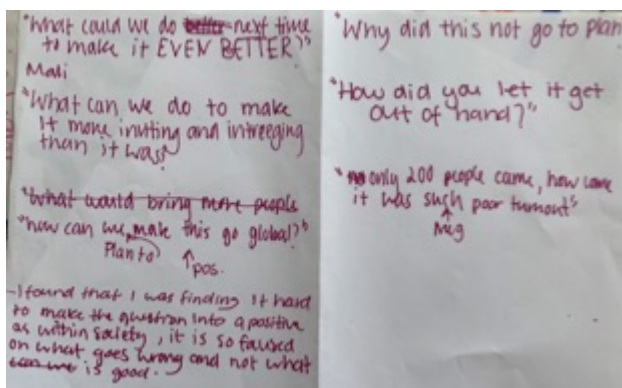 "What could we do better next time
to make it EVEN BETTER?"
Mali
"What can we do to make
it more inviting and intreeging
than it was"
"What would bring more people
"how can we make this go global?"
Plan to
↑ pos.
- I found that I was finding it hard
to make the question into a positive
as within society, it is so faused
on what goes wrong and not what
can we is good.
"Why did this not go to plan
"How did you let it get
out of hand?"
"only 200 people came, how come
it was such poor turnout"
↑
Neg